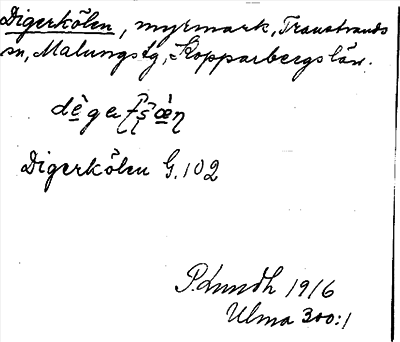 Digerkölen, myrmark, Transtrands
sn, Malungs tg, Kopparbergs län.
Digerkölen G.102
P. Lundh 1916
Ulma 300:1